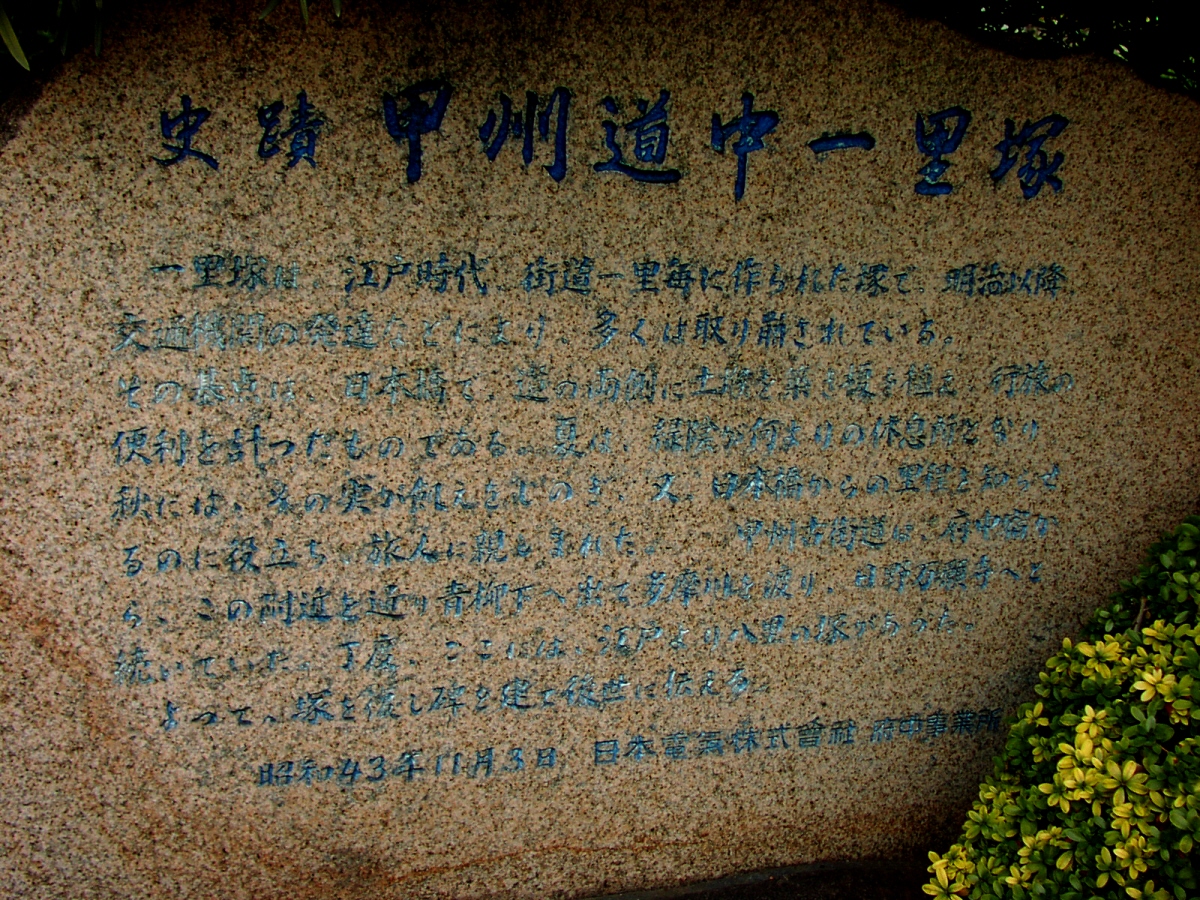 史蹟 甲州道中一里塚
一里塚は、江戸時代、街道一里毎に作られた塚で、明治以降、
交通機関の発達などにより、多くは取り崩されている。
その基点は、日本橋で、道の両側に土塚を築き榎を植え、行旅の
便利を計つたものである。夏は、緑陰が何よりの休息所となり
秋には、その実が飢えをしのぎ、又、日本橋からの里程を知らせ
るのに役立ち、旅人に親しまれた。 甲州古街道は、府中宿か
ら、この附近を通り青柳下へ出て多摩川を渡り、日野万願寺へと
続いていた。丁度、ここには、江戸より八里の塚があつた。
よつて、塚を復し碑を建て後世に伝える。
昭和43年11月3日 日本電気株式會社 府中事業所